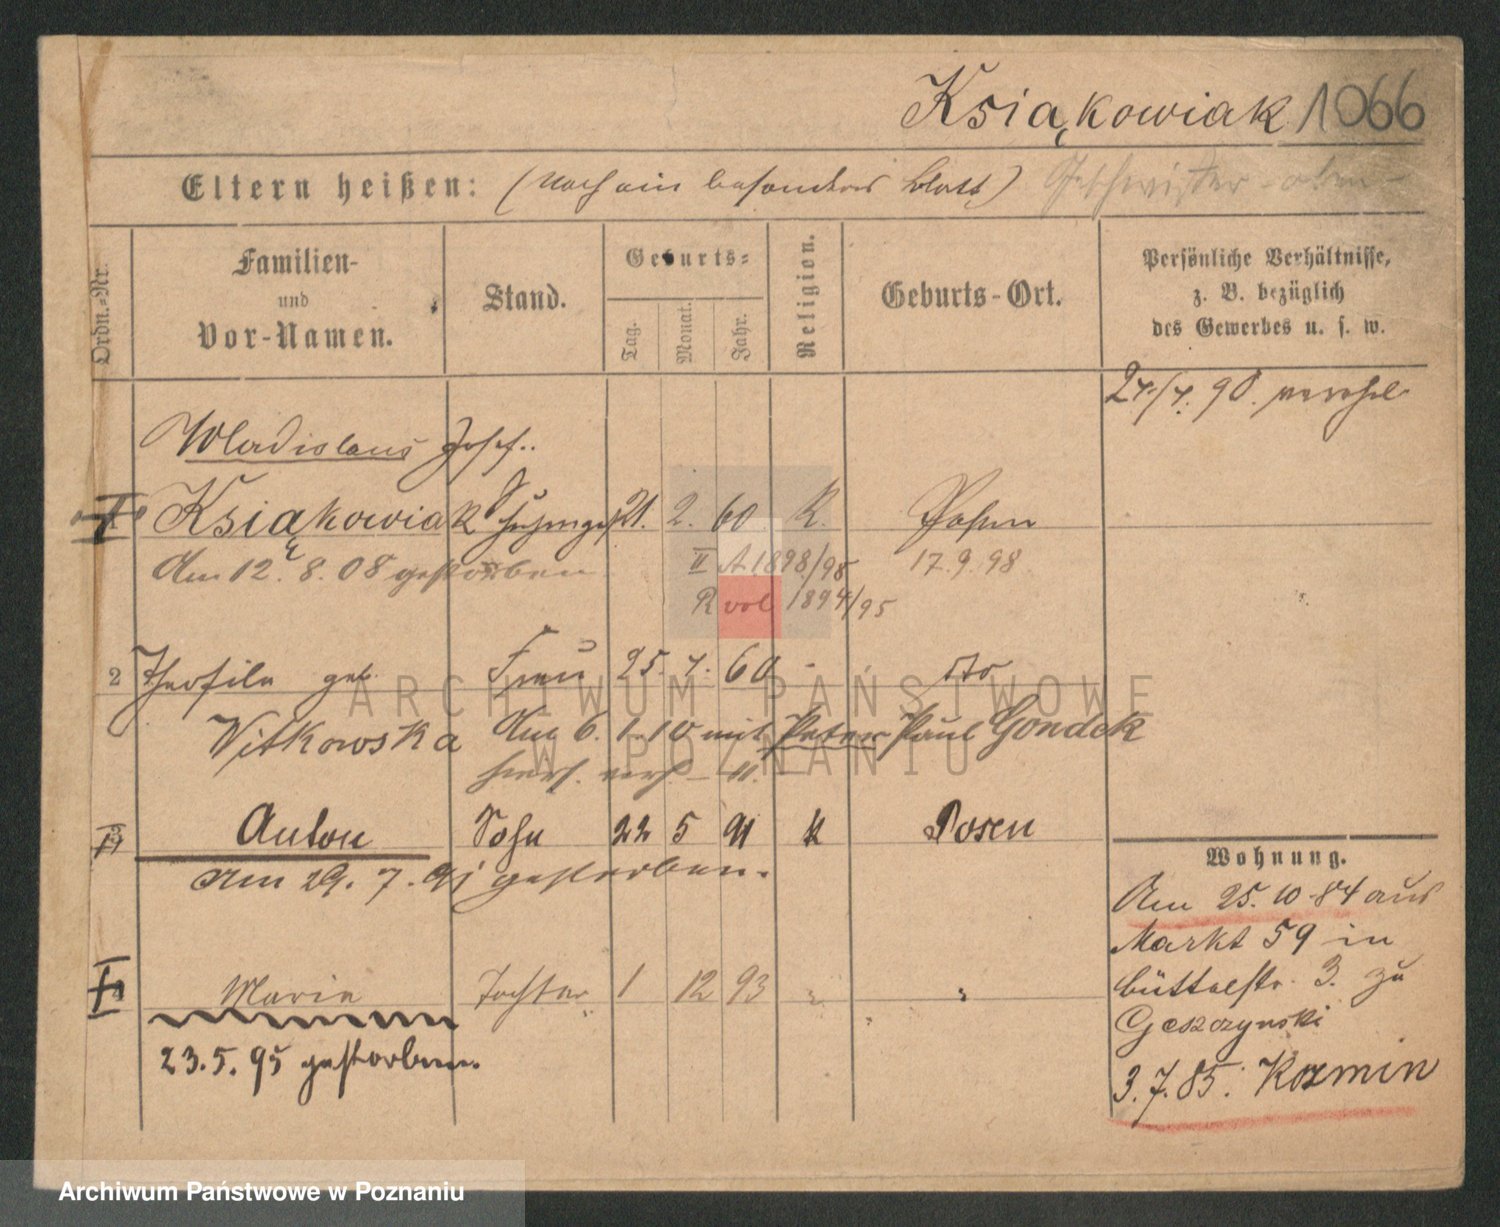 Ksiąkowiak 1066
Eltern heißen: (Noch ein besonderes Blatt) Geschwister - oben -
Ordn.-Nr.
Familien-
und
Vor-Namen.
Stand.
Geburts-
Tag. Monat. Jahr.
Religion.
Geburts-Ort.
Persönliche Verhältnisse,
z. B. bezüglich
des Gewerbes u. s. w.
90.
Wladislaus Josef
1 Ksiąkowiak 21. 2. 60 K. Posen
Am 12. 8. 08 gestorben
II A 1898/98 17.9.98
R vol 1894/95
2 geb. Frau 25. 60 - dto
Witkowska Am 6. 1. 10 mit Peter Paul Gondek
3 Anton Sohn 22 5 91 k Posen
Am 29. 7. 91 gestorben.
4 Marie Tochter 1 12 93 " "
23.5.95 gestorben.
Wohnung.
Am 25. 10 84 aus
Markt 59 in
Büttelstr. 3. zu
Geszczynski
3.7.85. Kozmin
ARCHIWUM PAŃSTWOWE
W POZNANIU
Archiwum Państwowe w Poznaniu